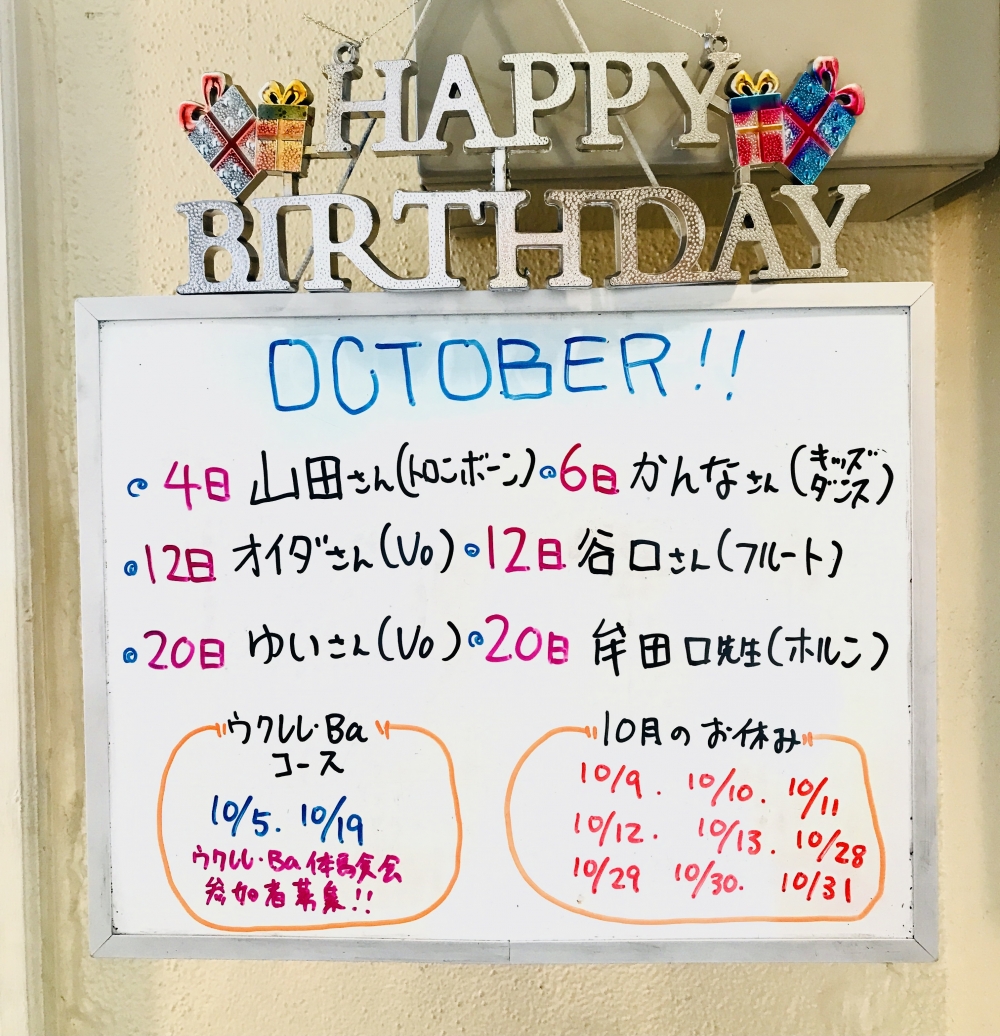 HAPPY
BIRTHDAY
OCTOBER!!
4日 山田さん(トロンボーン) 6日 かんなさん(キッズダンス)
12日 オイダさん(Vo) 12日 谷口さん(フルート)
20日 ゆいさん(Vo) 20日 牟田口先生(ホルン)
ウクレレ・Ba
コース
10/5. 10/19
ウクレレ・Ba体験会
参加者募集!!
10月のお休み
10/9. 10/10. 10/11
10/12. 10/13. 10/28
10/29 10/30. 10/31